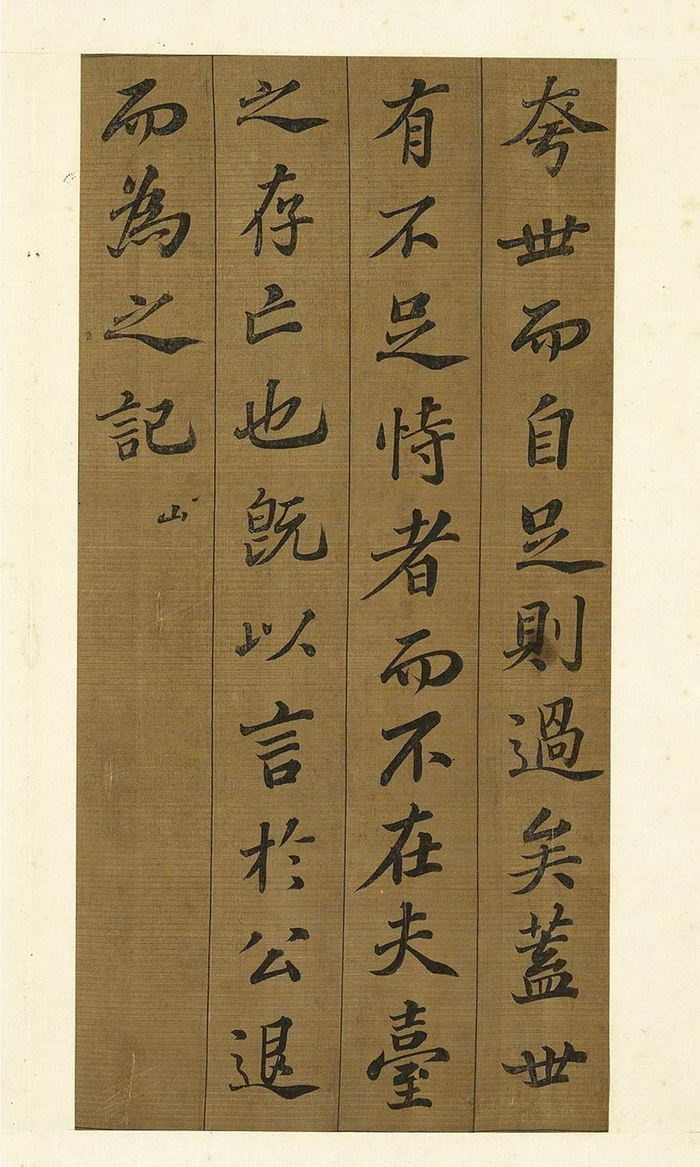 夸世而自足則過矣蓋世
有不足恃者而不在夫臺
之存亡也既以言於公退
而為之記
山